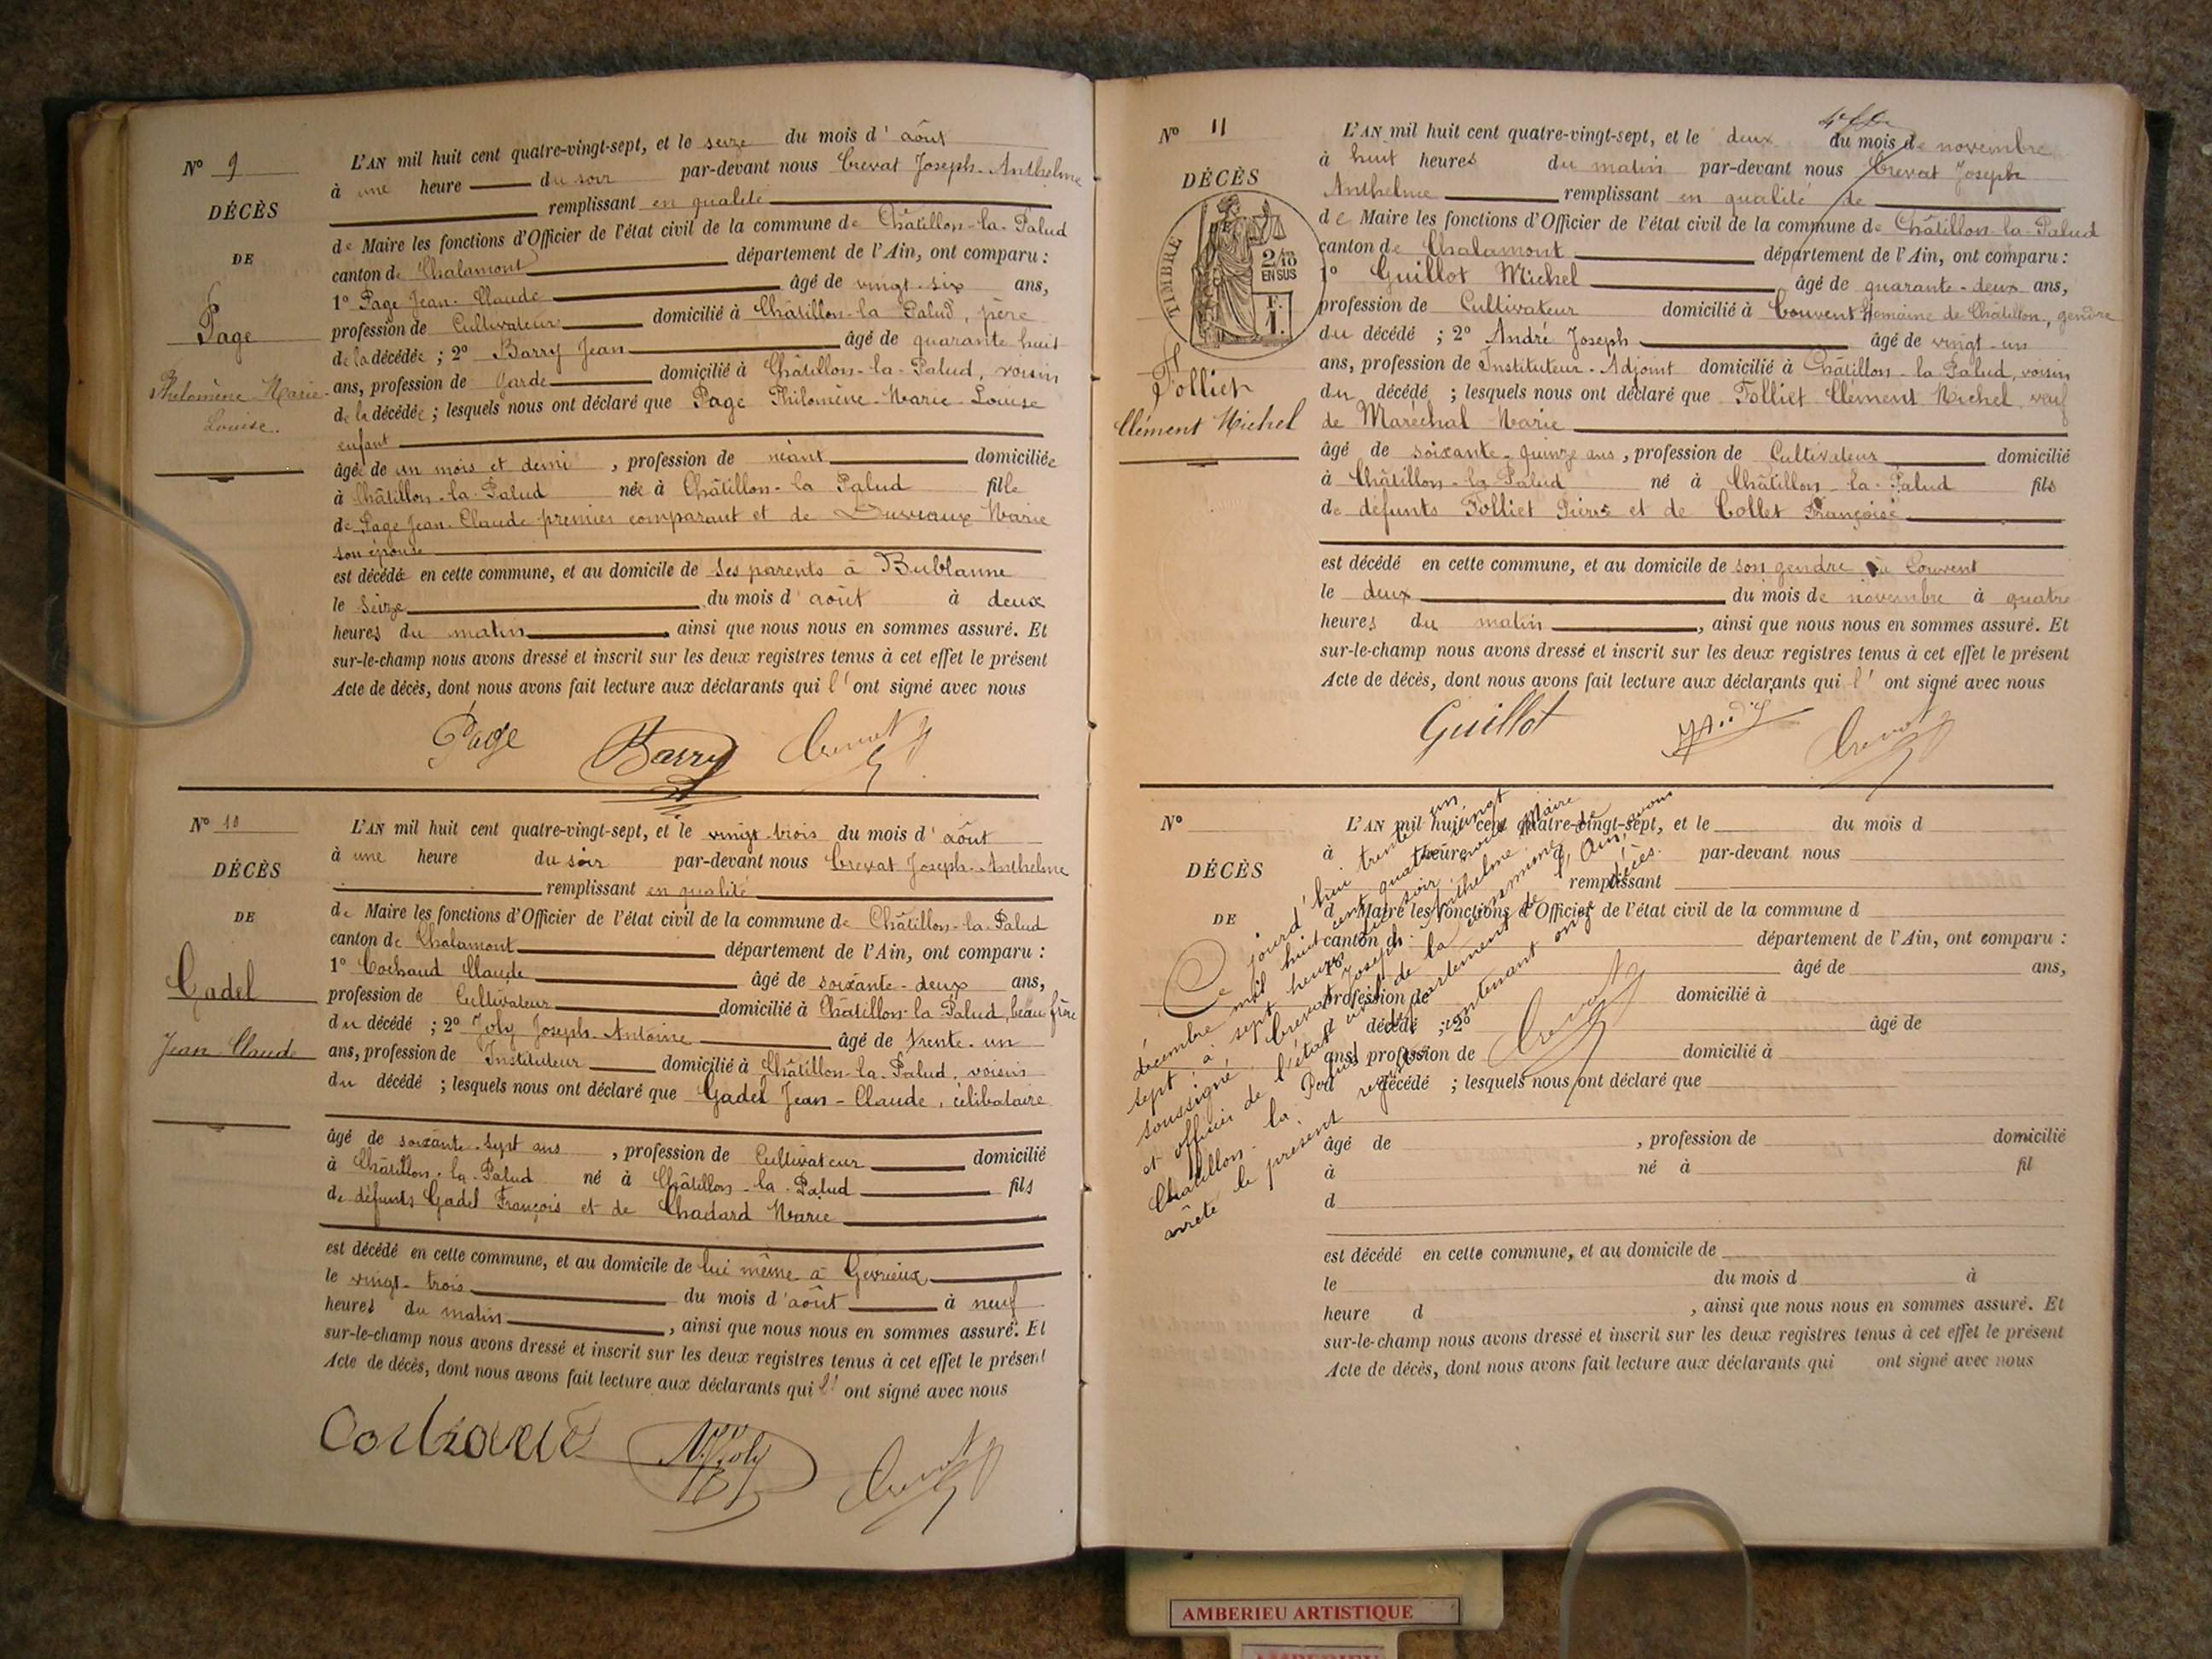 N° 9
DÉCÈS
DE
Page
Philomène Marie
Louise.
L'AN mil huit cent quatre-vingt-sept, et le seize du mois d'août
à une heure du soir par-devant nous Crevat Joseph-Anthelme
remplissant en qualité
de Maire les fonctions d'Officier de l'état civil de la commune de Châtillon-la-Palud
canton de Chalamont département de l'Ain, ont comparu :
1° Page Jean-Claude âgé de vingt-six ans,
profession de Cultivateur domicilié à Châtillon-la Palud, père
de la décédée ; 2° Barry Jean âgé de quarante huit
ans, profession de Garde domicilié à Châtillon-la-Palud, voisin
de la décédée ; lesquels nous ont déclaré que Page Philomène-Marie-Louise
enfant
âgée de un mois et demi , profession de néant domiciliée
à Châtillon-la-Palud née à Châtillon-la Palud fille
de Page Jean-Claude premier comparant et de Marie
son épouse
est décédée en cette commune, et au domicile de ses parents à Bublanne
le seize du mois d'août à deux
heures du matin ainsi que nous nous en sommes assuré. Et
sur-le-champ nous avons dressé et inscrit sur les deux registres tenus à cet effet le présent
Acte de décès, dont nous avons fait lecture aux déclarants qui l'ont signé avec nous
Page Barry Crevat
N° 10
DÉCÈS
DE
Gadel
Jean-Claude
L'AN mil huit cent quatre-vingt-sept, et le vingt-trois du mois d'août
à une heure du soir par-devant nous Crevat Joseph-Anthelme
remplissant en qualité
de Maire les fonctions d'Officier de l'état civil de la commune de Châtillon-la-Palud
canton de Chalamont département de l'Ain, ont comparu :
1° Cochaud Claude âgé de soixante-deux ans,
profession de Cultivateur domicilié à Châtillon-la-Palud, beau frère
du décédé ; 2° Joly Joseph-Antoine âgé de trente-un
ans, profession de Instituteur domicilié à Châtillon-la-Palud, voisin
du décédé ; lesquels nous ont déclaré que Gadel Jean-Claude, célibataire
âgé de soixante-sept ans , profession de Cultivateur domicilié
à Châtillon-la-Palud né à Châtillon-la-Palud fils
de défunts Gadel François et de Chadard Marie
est décédé en cette commune, et au domicile de lui même à Gévrieux
le vingt-trois du mois d'août à neuf
heures du matin , ainsi que nous nous en sommes assuré. Et
sur-le-champ nous avons dressé et inscrit sur les deux registres tenus à cet effet le présent
Acte de décès, dont nous avons fait lecture aux déclarants qui l'ont signé avec nous
Cochaud Joly Crevat
N° 11
DÉCÈS
TIMBRE
2/10
EN SUS
F.
1.
Folliet
Clément Michel
L'AN mil huit cent quatre-vingt-sept, et le deux du mois de novembre
à huit heures du matin par-devant nous Crevat Joseph
Anthelme remplissant en qualité de
de Maire les fonctions d'Officier de l'état civil de la commune de Châtillon-la-Palud
canton de Chalamont département de l'Ain, ont comparu :
1° Guillot Michel âgé de quarante-deux ans,
profession de Cultivateur domicilié à Couvent de Châtillon, gendre
du décédé ; 2° André Joseph âgé de vingt-un
ans, profession de Instituteur-Adjoint domicilié à Châtillon-la Palud, voisin
du décédé ; lesquels nous ont déclaré que Folliet Clément Michel, veuf
de Maréchal Marie
âgé de soixante-quinze ans , profession de Cultivateur domicilié
à Châtillon-la Palud né à Châtillon-la-Palud fils
de défunts Folliet Pierre et de Collet Françoise
est décédé en cette commune, et au domicile de son gendre au Couvent
le deux du mois de novembre à quatre
heures du matin , ainsi que nous nous en sommes assuré. Et
sur-le-champ nous avons dressé et inscrit sur les deux registres tenus à cet effet le présent
Acte de décès, dont nous avons fait lecture aux déclarants qui l'ont signé avec nous
Guillot Crevat
N°
DÉCÈS
DE
L'AN mil huit cent quatre-vingt-sept, et le du mois d
à heure par-devant nous
remplissant
d Maire les fonctions d'Officier de l'état civil de la commune d
canton d département de l'Ain, ont comparu :
âgé de ans,
profession de domicilié à
d décédé ; 2° âgé de
ans, profession de domicilié à
d décédé ; lesquels nous ont déclaré que
âgé de , profession de domicilié
à né à fil
d
est décédé en cette commune, et au domicile de
le du mois d à
heure d , ainsi que nous nous en sommes assuré. Et
sur-le-champ nous avons dressé et inscrit sur les deux registres tenus à cet effet le présent
Acte de décès, dont nous avons fait lecture aux déclarants qui ont signé avec nous
Ce jourd'hui trente un
décembre mil huit cent quatre vingt
sept à sept heures du soir, nous Maire
soussigné, Crevat Joseph-Anthelme
et officier de l'état civil de la commune de
Châtillon-la Palud département de l'Ain, avons
arrêté le présent registre contenant onze décès.
Crevat
AMBERIEU ARTISTIQUE
AMBERIEU